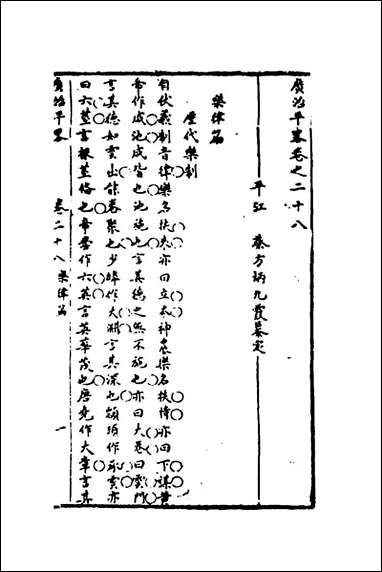 廣治平畧卷之二十八
平江 蔡方炳九霞纂定
樂律篇
歷代樂制
自伏羲制音律樂名扶來亦曰立本神農樂名扶持亦曰下謀黃
帝作咸池咸皆也池施也言其德之無不施也亦曰大卷曰雲門
言其德如雲出能卷聚也少皞作大淵言其深也顓頊作承雲亦
曰六莖言根莖脩也帝嚳作六英言英華茂也唐堯作大章言其
廣治平畧 卷二十八 樂律篇 一